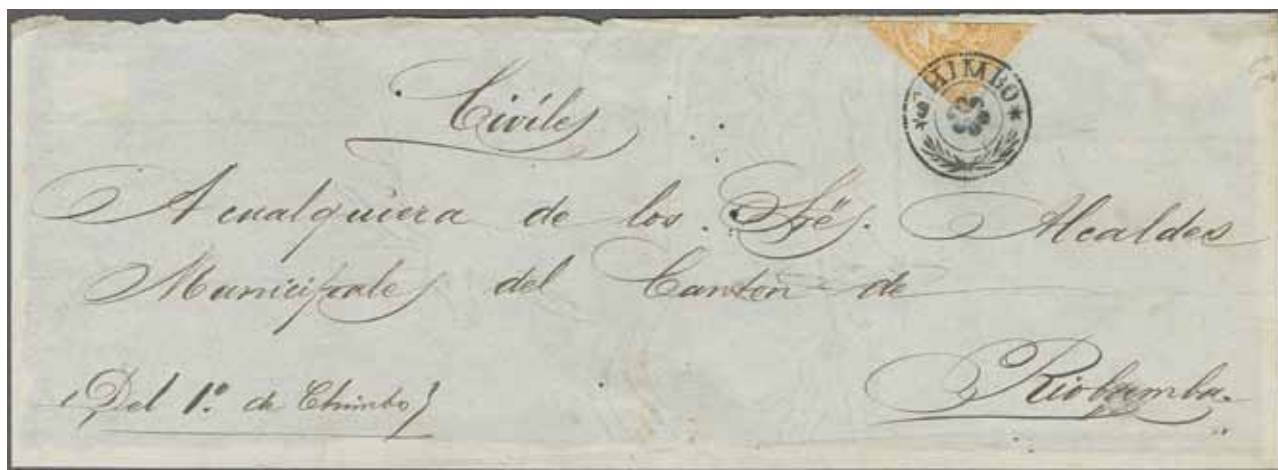 CHIMBO
Civiles
A cualquiera de los Sres. Alcaldes
Municipales del Canton de
Riobamba.
(Del 1º. de Chimbo)